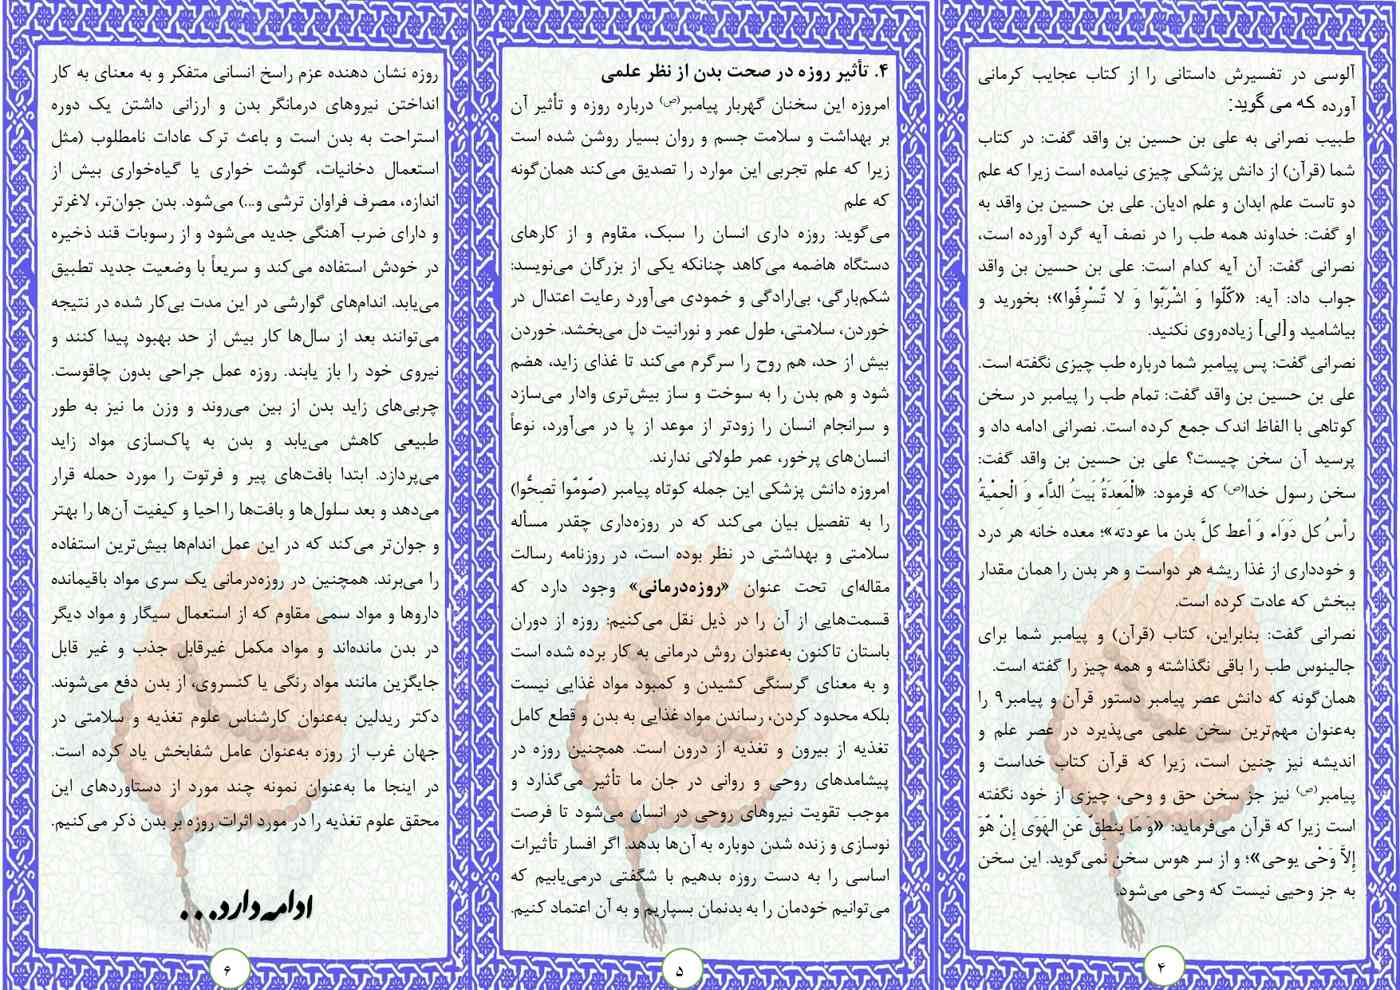 آلوسی در تفسیرش داستانی را از کتاب عجایب کرمانی
آورده که می گوید:
طبیب نصرانی به علی بن حسین بن واقد گفت: در کتاب
شما (قرآن) از دانش پزشکی چیزی نیامده است زیرا که علم
دو تاست علم ابدان و علم ادیان. علی بن حسین بن واقد به
او گفت: خداوند همه طب را در نصف آیه گرد آورده است،
نصرانی گفت: آن آیه کدام است: علی بن حسین بن واقد
جواب داد: آیه: «كُلُوا وَ اشْرَبُوا وَ لا تُسْرِفُوا»؛ بخورید و
بیاشامید و[لی] زیاده‌روی نکنید.
نصرانی گفت: پس پیامبر شما درباره طب چیزی نگفته است.
علی بن حسین بن واقد گفت: تمام طب را پیامبر در سخن
کوتاهی با الفاظ اندک جمع کرده است. نصرانی ادامه داد و
پرسید آن سخن چیست؟ علی بن حسین بن واقد گفت:
سخن رسول خدا(ص) که فرمود: «الْمَعِدَةُ بَيتُ الدَّاءِ وَ الْحِمْيةُ
رأسُ كل دَوَاء وَ أعط كلَّ بدن ما عودته»؛ معده خانه هر درد
و خودداری از غذا ریشه هر دواست و هر بدن را همان مقدار
ببخش که عادت کرده است.
نصرانی گفت: بنابراین، کتاب (قرآن) و پیامبر شما برای
جالینوس طب را باقی نگذاشته و همه چیز را گفته است.
همان‌گونه که دانش عصر پیامبر دستور قرآن و پیامبر۹ را
به‌عنوان مهم‌ترین سخن علمی می‌پذیرد در عصر علم و
اندیشه نیز چنین است، زیرا که قرآن کتاب خداست و
پیامبر(ص) نیز جز سخن حق و وحی، چیزی از خود نگفته
است زیرا که قرآن می‌فرماید: «وَ مَا ينطِقُ عَنِ الهَوَى إِنْ هُوَ
إِلاَّ وَحْى يوحى»؛ و از سر هوس سخن نمی‌گوید. این سخن
به جز وحیی نیست که وحی می‌شود.
۴
۴. تأثیر روزه در صحت بدن از نظر علمی
امروزه این سخنان گهربار پیامبر(ص) درباره روزه و تأثیر آن
بر بهداشت و سلامت جسم و روان بسیار روشن شده است
زیرا که علم تجربی این موارد را تصدیق می‌کند همان‌گونه
که علم
می‌گوید: روزه داری انسان را سبک، مقاوم و از کارهای
دستگاه هاضمه می‌کاهد چنانکه یکی از بزرگان می‌نویسد:
شکم‌بارگی، بی‌ارادگی و خمودی می‌آورد رعایت اعتدال در
خوردن، سلامتی، طول عمر و نورانیت دل می‌بخشد. خوردن
بیش از حد، هم روح را سرگرم می‌کند تا غذای زاید، هضم
شود و هم بدن را به سوخت و ساز بیش‌تری وادار می‌سازد
و سرانجام انسان را زودتر از موعد از پا در می‌آورد، نوعاً
انسان‌های پرخور، عمر طولانی ندارند.
امروزه دانش پزشکی این جمله کوتاه پیامبر (صُومُوا تَصِحُّوا)
را به تفصیل بیان می‌کند که در روزه‌داری چقدر مسأله
سلامتی و بهداشتی در نظر بوده است، در روزنامه رسالت
مقاله‌ای تحت عنوان «روزه‌درمانی» وجود دارد که
قسمت‌هایی از آن را در ذیل نقل می‌کنیم: روزه از دوران
باستان تاکنون به‌عنوان روش درمانی به کار برده شده است
و به معنای گرسنگی کشیدن و کمبود مواد غذایی نیست
بلکه محدود کردن، رساندن مواد غذایی به بدن و قطع کامل
تغذیه از بیرون و تغذیه از درون است. همچنین روزه در
پیشامدهای روحی و روانی در جان ما تأثیر می‌گذارد و
موجب تقویت نیروهای روحی در انسان می‌شود تا فرصت
نوسازی و زنده شدن دوباره به آن‌ها بدهد. اگر افسار تأثیرات
اساسی را به دست روزه بدهیم با شگفتی درمی‌یابیم که
می‌توانیم خودمان را به بدنمان بسپاریم و به آن اعتماد کنیم.
۵
روزه نشان دهنده عزم راسخ انسانی متفکر و به معنای به کار
انداختن نیروهای درمانگر بدن و ارزانی داشتن یک دوره
استراحت به بدن است و باعث ترک عادات نامطلوب (مثل
استعمال دخانیات، گوشت خواری یا گیاه‌خواری بیش از
اندازه، مصرف فراوان ترشی و...) می‌شود. بدن جوان‌تر، لاغرتر
و دارای ضرب آهنگی جدید می‌شود و از رسوبات قند ذخیره
در خودش استفاده می‌کند و سریعاً با وضعیت جدید تطبیق
می‌یابد. اندام‌های گوارشی در این مدت بی‌کار شده در نتیجه
می‌توانند بعد از سال‌ها کار بیش از حد بهبود پیدا کنند و
نیروی خود را باز یابند. روزه عمل جراحی بدون چاقوست.
چربی‌های زاید بدن از بین می‌روند و وزن ما نیز به طور
طبیعی کاهش می‌یابد و بدن به پاک‌سازی مواد زاید
می‌پردازد. ابتدا بافت‌های پیر و فرتوت را مورد حمله قرار
می‌دهد و بعد سلول‌ها و بافت‌ها را احیا و کیفیت آن‌ها را بهتر
و جوان‌تر می‌کند که در این عمل اندام‌ها بیش‌ترین استفاده
را می‌برند. همچنین در روزه‌درمانی یک سری مواد باقیمانده
داروها و مواد سمی مقاوم که از استعمال سیگار و مواد دیگر
در بدن مانده‌اند و مواد مکمل غیرقابل جذب و غیر قابل
جایگزین مانند مواد رنگی یا کنسروی، از بدن دفع می‌شوند.
دکتر ریدلین به‌عنوان کارشناس علوم تغذیه و سلامتی در
جهان غرب از روزه به‌عنوان عامل شفابخش یاد کرده است.
در اینجا ما به‌عنوان نمونه چند مورد از دستاوردهای این
محقق علوم تغذیه را در مورد اثرات روزه بر بدن ذکر می‌کنیم.
ادامه دارد...
۶